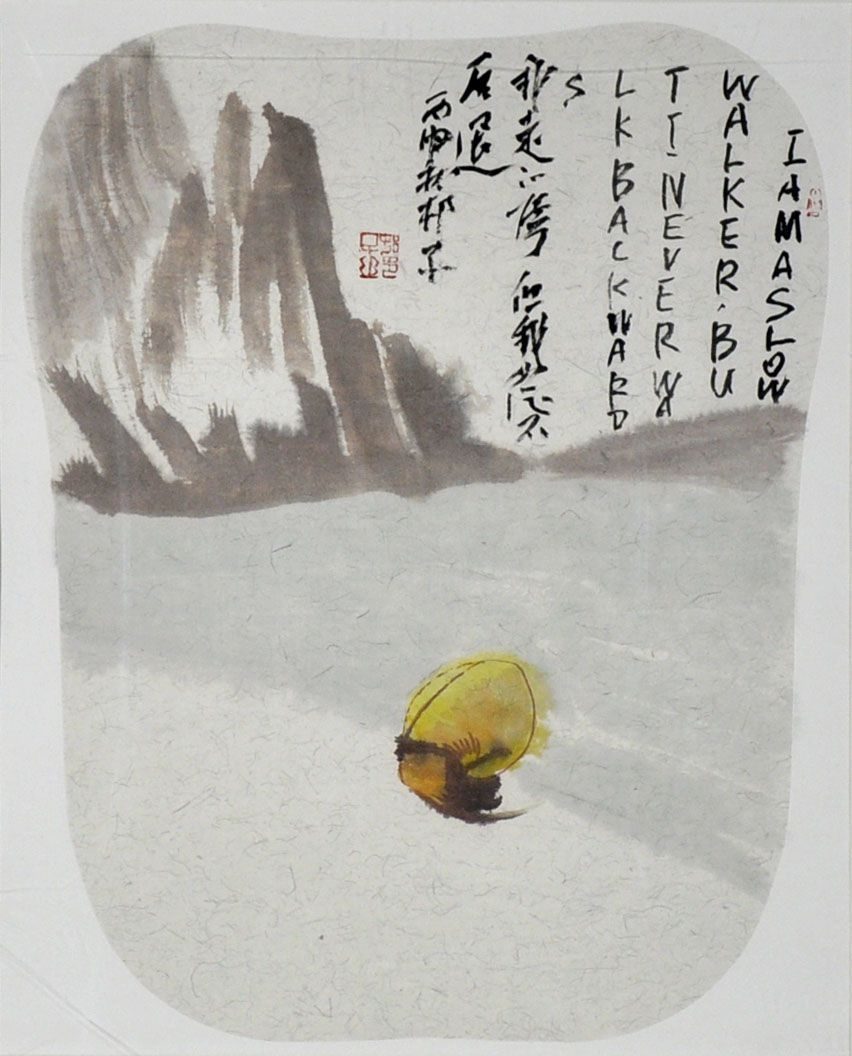 IAMASLOW
WALKER.BU
TI-NEVERWA
LKBACKWARD
S
我走得慢但我從不
后退
丙申秋